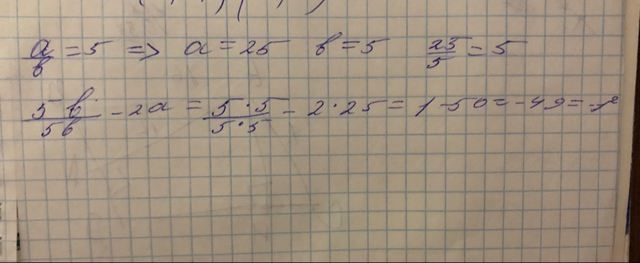 a/b = 5 => a = 25 b = 5 25/5 = 5
5b/5b - 2a = 5·5/5·5 - 2·25 = 1 - 50 = -49 =